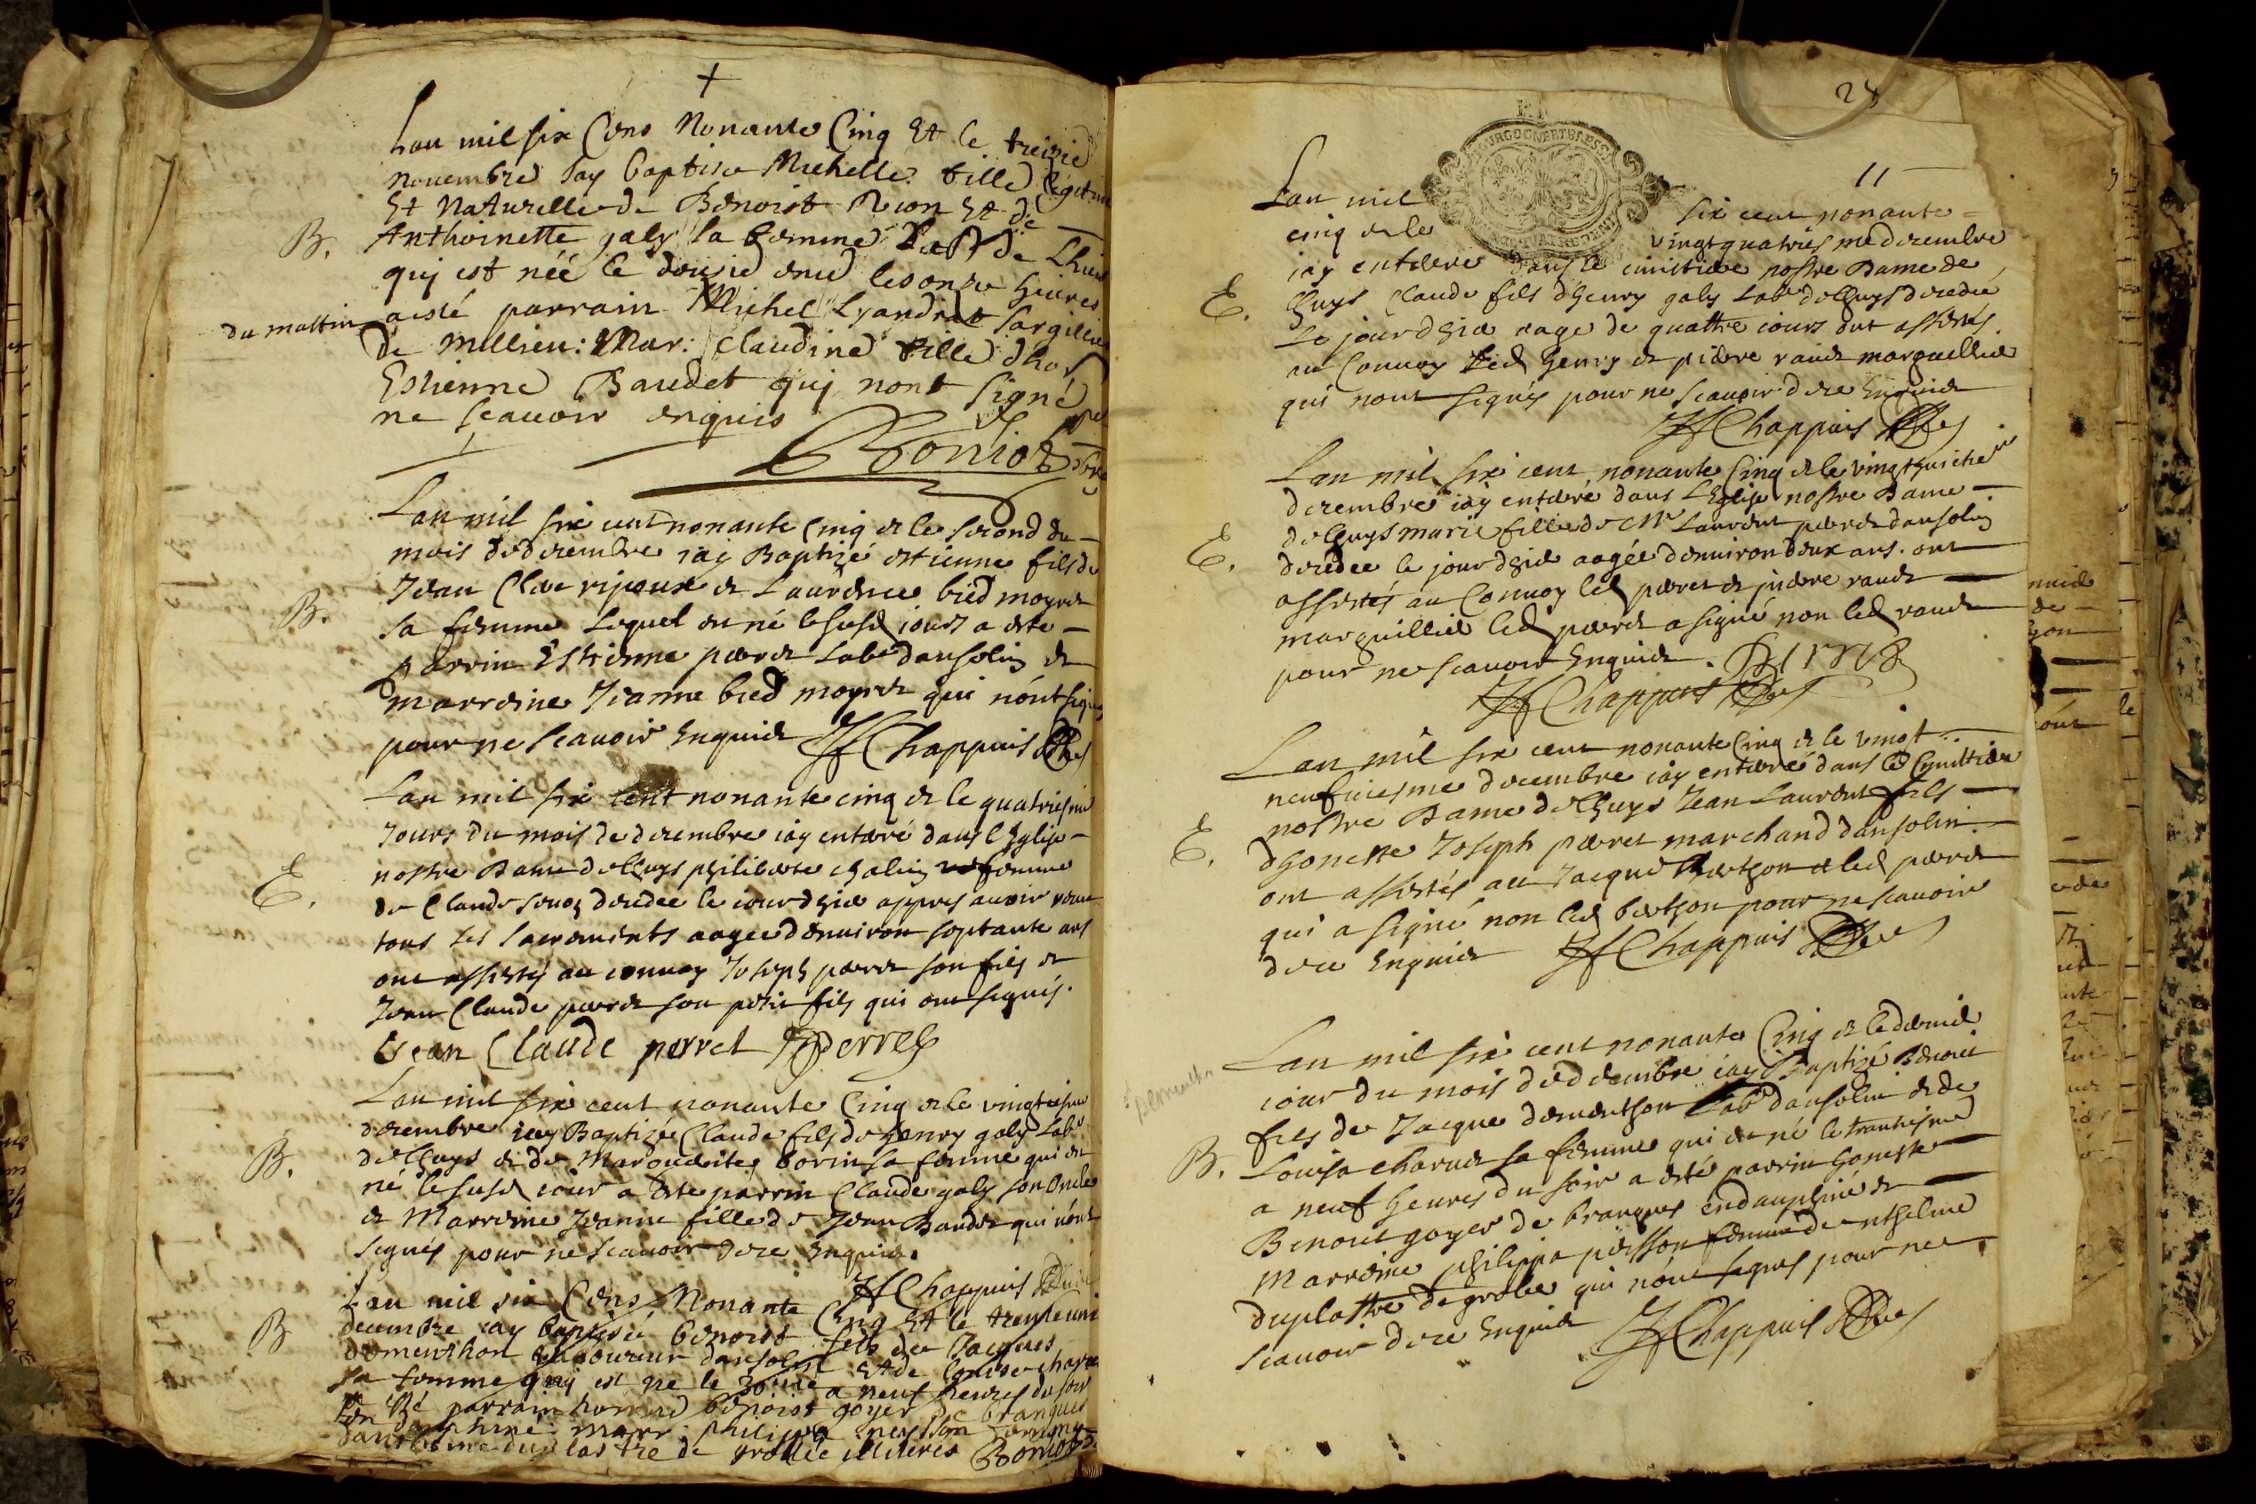 Lan mil six Cens Nonante Cinq Et le treizie
novembre Jay baptisé Michelle fille légitime
Et Naturelle de Benoist Et de
B. Anthoinette galy sa femme de Lhuis
quj est néé le douzie dud les onze heures
du mattin a esté parrain Michel Lyandrat
de Millieu: Mar: Claudine fille dhon
Estienne Baudet quj nont signé
ne scavoir enquis
Boniot
Lan mil six cent nonante Cinq et le second du
mois de decembre iay Baptizé estienne fils de
Jean Claude et Laurence bied moyret
B. sa femme Lequel est né le susd jours a este
parrin Estienne perret Labr dansolin et
marreine Jeanne bied moyret qui nont signés
pour ne scavoir Enquiet JfChappuis
Lan mil six cent nonante cinq et le quatriesme
Jours du mois de decembre iay enterré dans l'Eglise
nostre Dame de Lhuys philiberte femme
E. de Claude decedee le jour dhier appres avoir receu
tous ses sacrements aagee denviron septante ans
ont assistés au convoy Joseph perret son fils et
Jean Claude perret son petit fils qui ont signés.
Jean Claude perret JPerret
Lan mil six cent nonante Cinq et le vingtiesme
decembre iay Baptizée Claude fils de henry galy Labr
B. de Lhuys et de Marguerite borin sa femme qui est
né le susd jour a este parrin Claude galy son oncle
et Marreine Jeanne fille de Jean Baudet qui nont
signés pour ne scavoir dece Enquis.
JfChappuis
Lan mil six Cens Nonante Cinq Et le trente uni
B decembre iay baptisé benoist fils de Jacques
dementhon laboureur dansolin et de Louise charvet
sa femme quj est né le 30me a neuf heures du soir
Ont Eté parrain honord benoist goyet de branques
en dauphiné: marr philippa
duplastre de grolée illiteres Boniot
28
11
Lan mil six cent nonante
cinq et le vingt quatriesme decembre
iay enterre dans le cimittiere nostre Dame de
E. Lhuys Claude fils dhenry galy Labr de Lhuys decedé
Le jour dhier aage de quattre jours ont assistés
au Convoy Led henry et pierre raudet marguellier
qui nont signés pour ne scavoir dece Enquiet
JfChappuis
Lan mil six cent nonante Cinq et le vingt huictie
decembre iay enterré dans L'Eglise nostre Dame
E. de Lhuys marie fille de Mr Laurent perret dansolin
decedee le jour dhier aagée denviron deux ans. ont
assistés au Convoy led perret et pierre raudet
marguillier led perret a signé non led raudet
pour ne scavoir Enquiet.
JfChappuis
Lan mil six cent nonante Cinq et le vingt
neufviesme decembre iay enterré dans le Cymittiere
nostre Dame de Lhuys Jean Laurent fils
E. dhoneste Joseph perret marchand dansolin.
ont assistés au Jacque berthon et led perret
qui a signé non led berthon pour ne scavoir
dece Enquiet JfChappuis
Lan mil six cent nonante Cinq et le dernier
jour du mois de decembre iay Baptizé Benoit
fils de Jacque dementhon Labr dansolin et de
B. Louisa charvet sa femme qui est né le trentiesme
a neuf heures du soir a esté parrin honeste
Benoit goyet de branques en dauphiné et
Marreine philippa femme de
duplattre de grolee qui nont signés pour ne
scavoir dece Enquiet JfChappuis